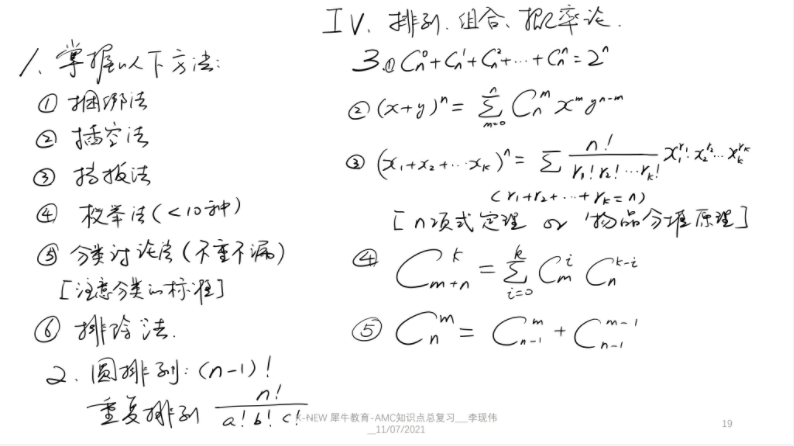 IV. 排列.组合.概率论.
1. 掌握以下方法:
① 捆绑法
② 插空法
③ 挡板法
④ 枚举法(<10种)
⑤ 分类讨论法(不重不漏)
[注意分类的标准]
⑥ 排除法.
2. 圆排列: (n-1)!
重复排列 n!/(a! b! c!)
3. ① C_n^0 + C_n^1 + C_n^2 + ... + C_n^n = 2^n
② (x+y)^n = Σ_{m=0}^{n} C_n^m x^m y^{n-m}
③ (x_1+x_2+...x_k)^n = Σ n!/(r_1! r_2! ... r_k!) x_1^{r_1} x_2^{r_2} ... x_k^{r_k}
(r_1+r_2+...+r_k=n)
[n项式定理 or 物品分堆原理]
④ C_{m+n}^k = Σ_{i=0}^{k} C_m^i C_n^{k-i}
⑤ C_n^m = C_{n-1}^m + C_{n-1}^{m-1}
-NEW 犀牛教育-AMC知识点总复习__李现伟
__11/07/2021
19